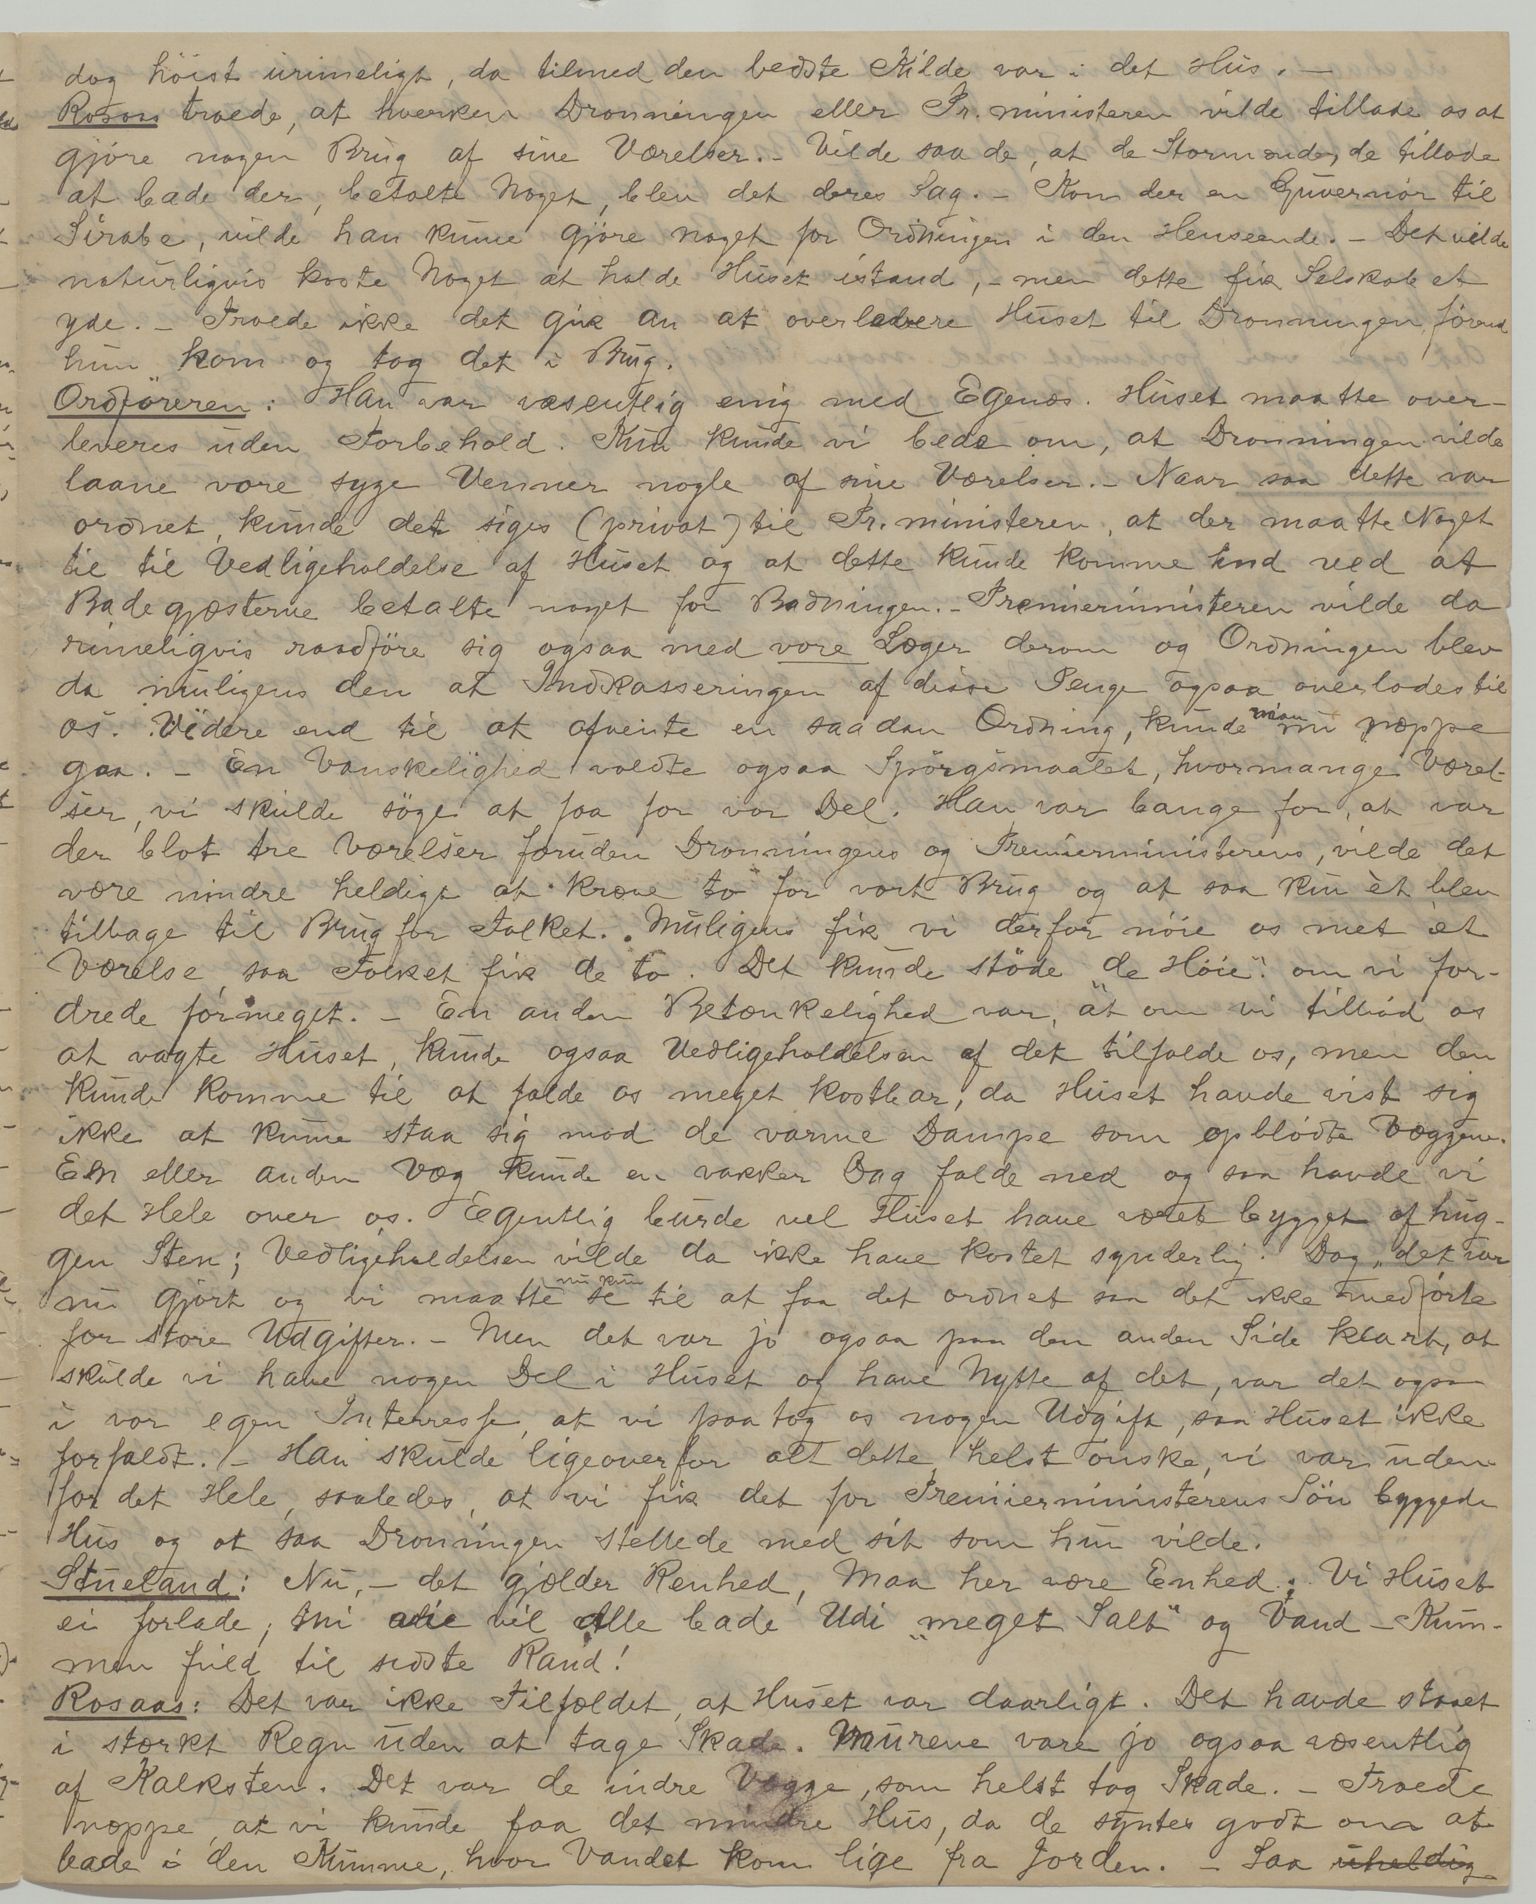 dog höist urimeligt, da tilmed den bedste Kilde var i det Hus. —
Rosaas troede, at hverken Dronningen eller Pr. ministeren vilde tillade os at
gjöre nogen Brug af sine Værelser. – Vilde saa de, at de Stormænd, de tillode
at bade der, betalte Noget, blev det deres Sag. – Kom der en Guvernör til
Sirabe, vilde han kunne gjöre noget for Ordningen i den Henseende. – Det vilde
naturligvis koste Noget at holde Huset istand, – men dette fik Selskabet
yde. – Troede ikke det gik an at overlevere Huset til Dronningen, förend
hun kom og tog det i Brug.
Ordföreren: Han var væsentlig enig med Egenæs. Huset maatte over-
leveres uden Forbehold. Kun kunde vi bede om, at Dronningen vilde
laane vore syge Venner nogle af sine Værelser. – Naar saa dette var
ordnet, kunde det siges (privat) til Pr. ministeren, at der maatte Noget
til til Vedligeholdelse af Huset og at dette kunde komme ind ved at
Badegjæsterne betalte noget for Badningen. – Premierministeren vilde da
rimeligvis raadföre sig ogsaa med vore Læger derom og Ordningen blev
da muligens den at Indkasseringen af disse Penge ogsaa overlodes til
os. Videre end til at afvente en saadan Ordning, kunde man nu næppe
gaa. – En Vanskelighed voldte ogsaa Spörgsmaalet, hvormange Værel-
ser, vi skulde söge at faa for vor Del. Han var bange for, at var
der blot tre Værelser foruden Dronningens og Premierministerens, vilde det
være mindre heldigt at kræve to for vort Brug og at saa kun èt blev
tilbage til Brug for Folket. Muligens fik vi derfor nöie os met èt
Værelse, saa Folket fik de to. Det kunde støde "de Höie": om vi for-
drede formeget. – En anden Betænkelighed var, at om vi tilböd os
at vogte Huset, kunde ogsaa Vedligeholdelsen af det tilfalde os, men den
kunde komme til at falde os meget kostbar, da Huset havde vist sig
ikke at kunne staa sig mod de varme Dampe som opblödte Væggene.
En eller anden Væg kunde en vakker Dag falde ned og saa havde vi
det Hele over os. Egentlig burde vel Huset have været bygget af hug-
gen Sten; Vedligeholdelsen vilde da ikke have kostet synderlig. Dog, det var
nu gjort og vi maatte nu kun se til at faa det ordnet saa det ikke medförte
for store Udgifter. – Men det var jo ogsaa paa den anden Side klart, at
skulde vi have nogen Del i Huset og have Nytte af det, var det ogsaa
i vor egen Interresse, at vi paatog os nogen Udgift, saa Huset ikke
forfaldt. – Han skulde ligeoverfor alt dette helst önske, vi var uden-
for det Hele, saaledes, at vi fik det for Premierministerens Sön byggede
Hus og at saa Dronningen stellede med sit som hun vilde.
Stueland: Nu, – det gjælder Renhed, Maa her være Enhed; Vi Huset
ei forlade, vil Alle bade Udi "meget Salt" og Vand – Kum-
men fuld til sidste Rand!
Rosaas: Det var ikke Tilfældet, at Huset var daarligt. Det havde staaet
i stærkt Regn uden at tage Skade. Murene vare jo ogsaa væsentlig
af Kalksten. Det var de indre Vægge, som helst tog Skade. – Troede
næppe, at vi kunde faa det mindre Hus, da de syntes godt om at
bade i den Kumme, hvor Vandet kom lige fra Jorden. – Saa uheldig